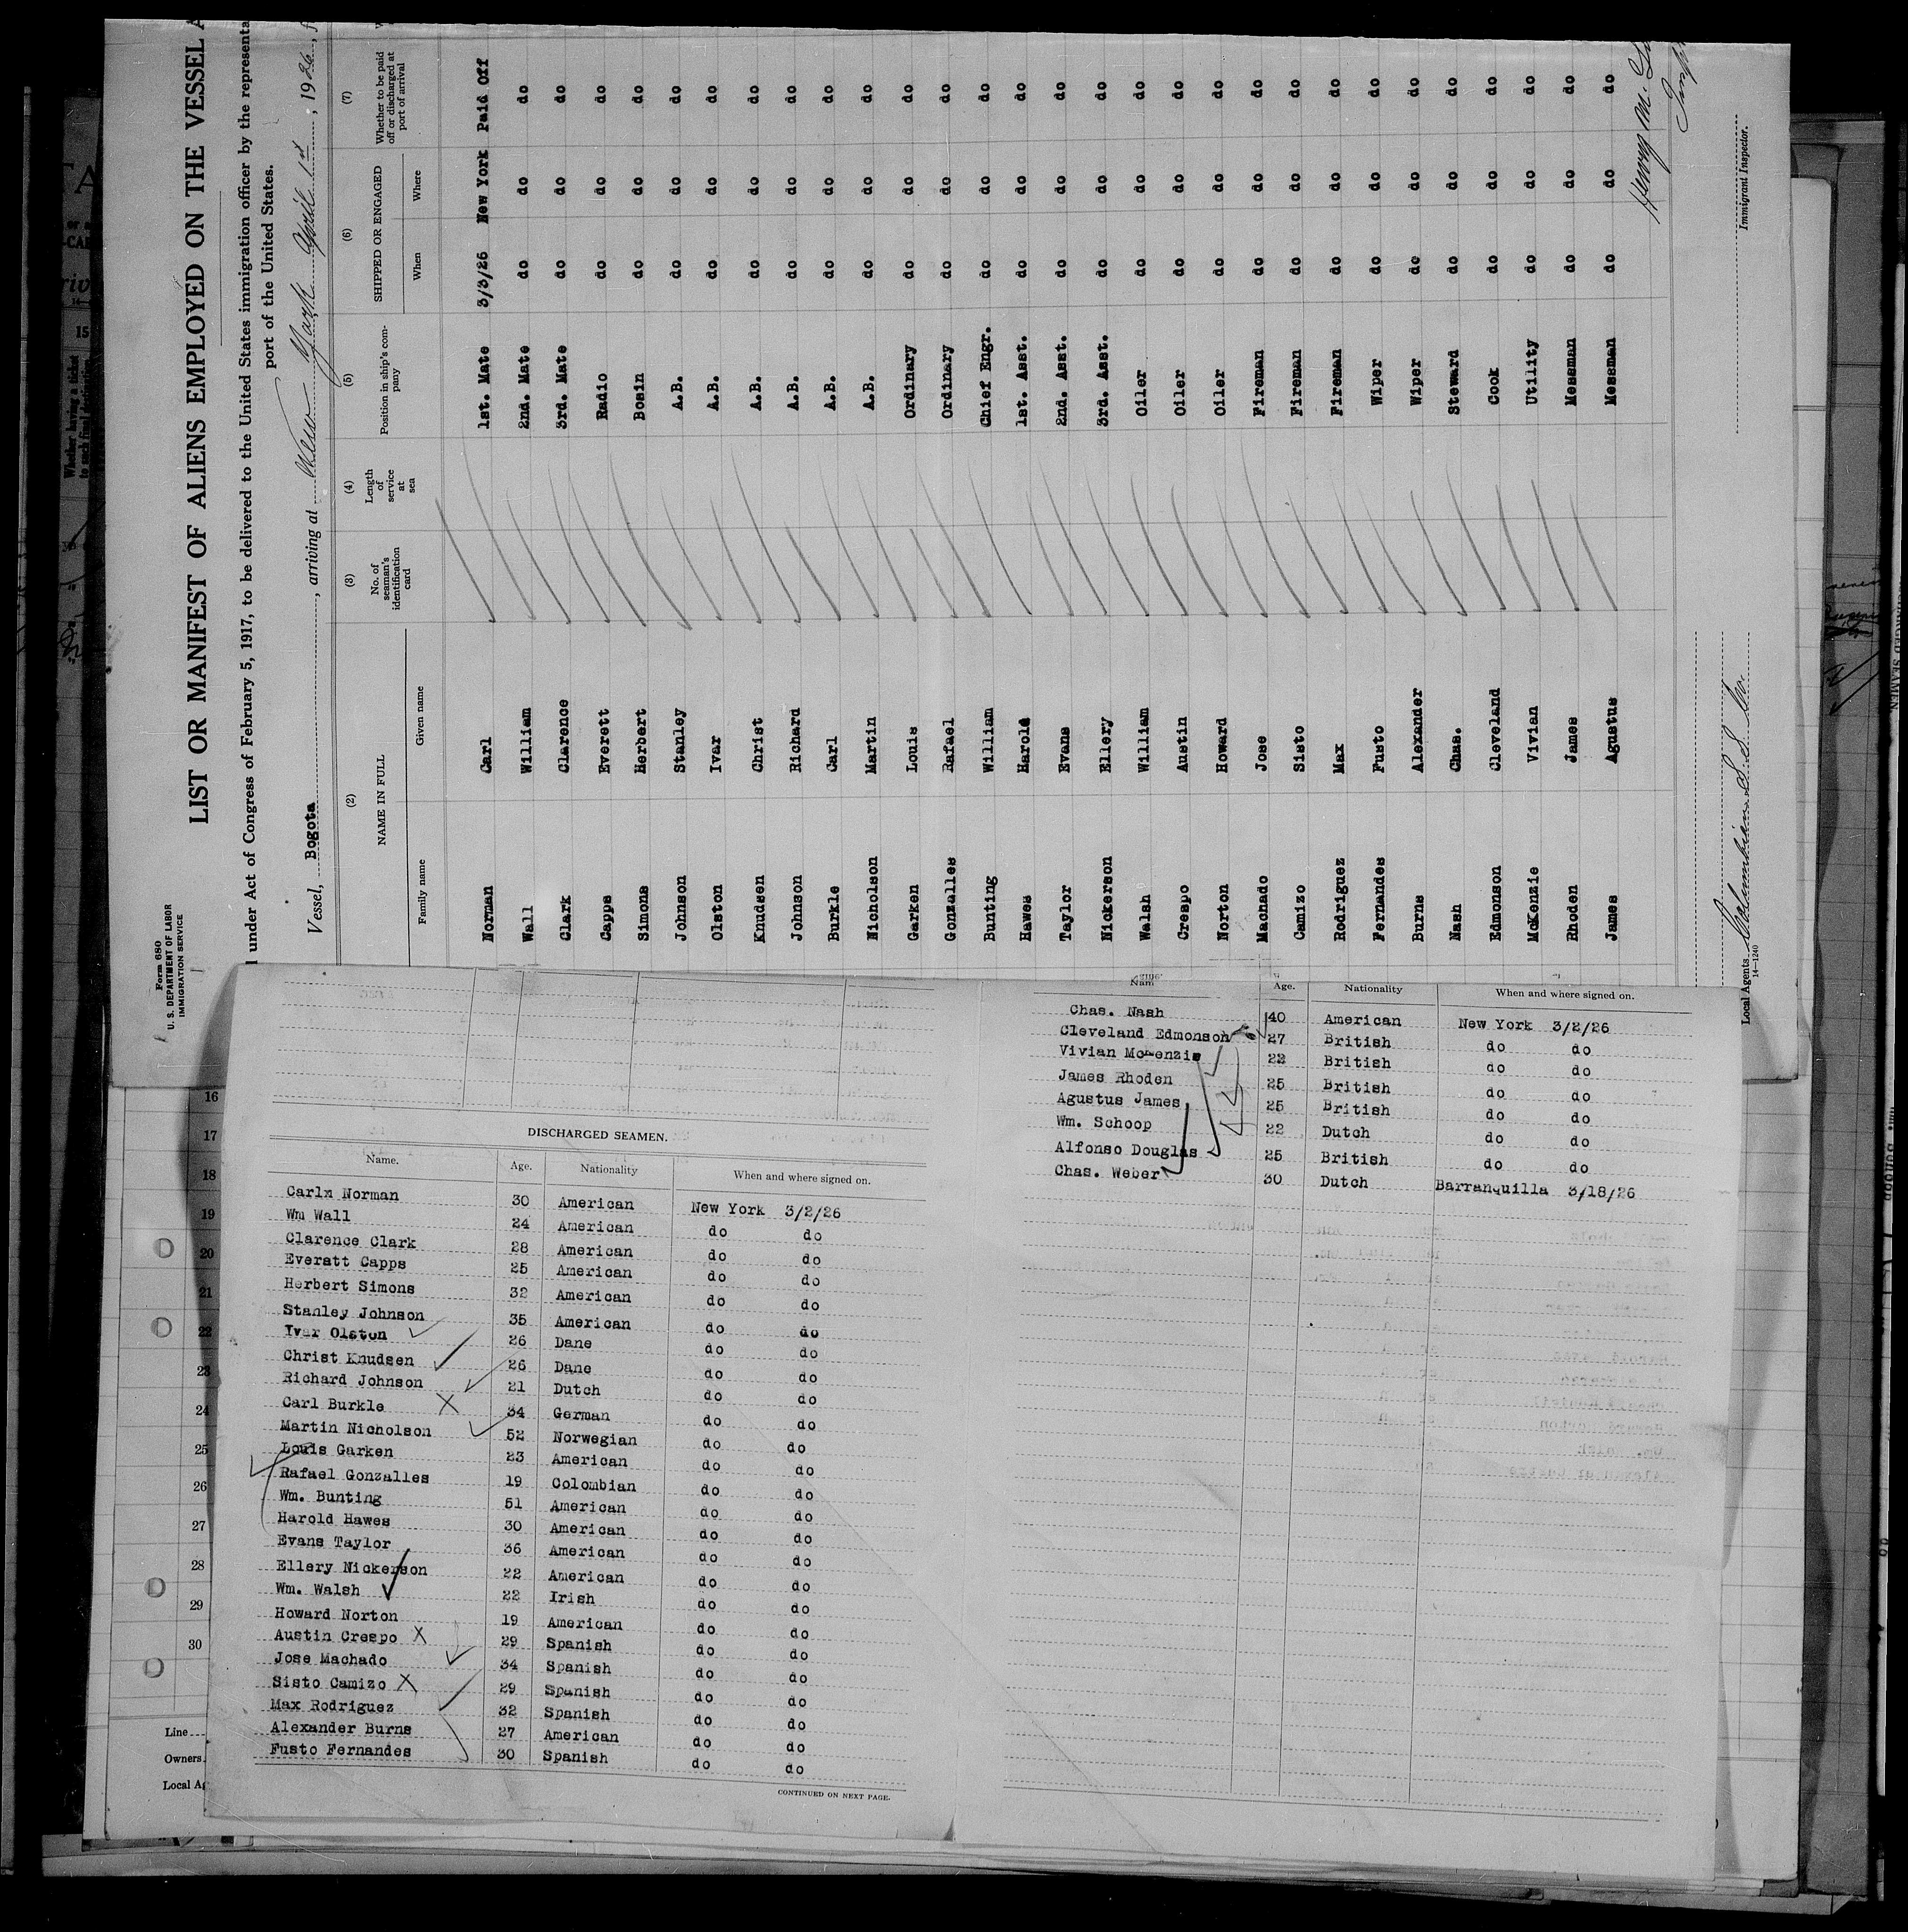 Form 680
U. S. DEPARTMENT OF LABOR
IMMIGRATION SERVICE
LIST OR MANIFEST OF ALIENS EMPLOYED ON THE VESSEL
under Act of Congress of February 5, 1917, to be delivered to the United States immigration officer by the
port of the United States.
Vessel, Bogota, arriving at New York April 1st, 1926
(2) (3) (4) (5) (6) (7)
NAME IN FULL No. of seaman's identification card Length of service at sea Position in ship's company SHIPPED OR ENGAGED Whether to be paid off or discharged at port of arrival
Family name Given name When Where
Norman Carl 1st. Mate 3/3/26 New York Paid Off
Wall William 2nd. Mate do do do
Clark Clarence 3rd. Mate do do do
Capps Everett Radio do do do
Simons Herbert Bosin do do do
Johnson Stanley A.B. do do do
Olston Ivar A.B. do do do
Knudsen Christ A.B. do do do
Johnson Richard A.B. do do do
Burkle Carl A.B. do do do
Nicholson Martin A.B. do do do
Garken Louis Ordinary do do do
Gonsalles Rafael Ordinary do do do
Bunting William Chief Engr. do do do
Hawes Harold 1st. Asst. do do do
Taylor Evans 2nd. Asst. do do do
Nickerson Ellery 3rd. Asst. do do do
Walsh William Oiler do do do
Crespo Austin Oiler do do do
Norton Howard Oiler do do do
Machado Jose Fireman do do do
Camizo Sisto Fireman do do do
Rodriguez Max Fireman do do do
Fernandes Fusto Wiper do do do
Burns Alexander Wiper do do do
Nash Chas. Steward do do do
Edmonson Cleveland Cook do do do
McKenzie Vivian Utility do do do
Rhoden James Messman do do do
James Agustus Messman do do do
Henry M.
Local Agents Columbian S.S. Co.
Immigrant Inspector.
14—1240
16
17
18
19
20
21
22
23
24
25
26
27
28
29
30
Line
Owners
Local
DISCHARGED SEAMEN.
Name. Age. Nationality When and where signed on.
Carln Norman 30 American New York 3/2/26
Wm Wall 24 American do do
Clarence Clark 28 American do do
Everatt Capps 25 American do do
Herbert Simons 32 American do do
Stanley Johnson 35 American do do
Ivar Olston 26 Dane do do
Christ Knudsen 26 Dane do do
Richard Johnson 21 Dutch do do
Carl Burkle X 34 German do do
Martin Nicholson 52 Norwegian do do
Louis Garken 23 American do do
Rafael Gonzalles 19 Colombian do do
Wm. Bunting 51 American do do
Harold Hawes 30 American do do
Evans Taylor 36 American do do
Ellery Nickerson 22 American do do
Wm. Walsh 22 Irish do do
Howard Norton 19 American do do
Austin Crespo X 29 Spanish do do
Jose Machado 34 Spanish do do
Sisto Camizo X 29 Spanish do do
Max Rodriguez 32 Spanish do do
Alexander Burns 27 American do do
Fusto Fernandes 30 Spanish do do
CONTINUED ON NEXT PAGE.
Age. Nationality When and where signed on.
Chas. Nash 40 American New York 3/2/26
Cleveland Edmonson 27 British do do
Vivian McKenzie 22 British do do
James Rhoden 25 British do do
Agustus James 25 British do do
Wm. Schoop 22 Dutch do do
Alfonso Douglas 25 British do do
Chas. Weber 30 Dutch Barranquilla 3/18/26